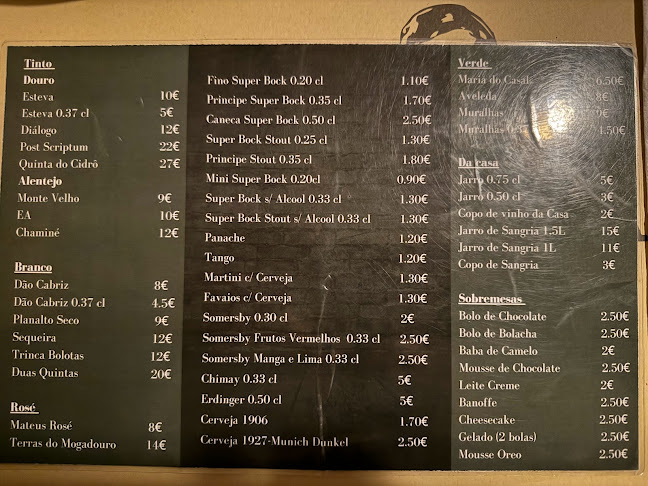 Tinto
Douro
Esteva 10€
Esteva 0.37 cl 5€
Diálogo 12€
Post Scriptum 22€
Quinta do Cidrô 27€
Alentejo
Monte Velho 9€
EA 10€
Chaminé 12€
Branco
Dão Cabriz 8€
Dão Cabriz 0.37 cl 4.5€
Planalto Seco 9€
Sequeira 12€
Trinca Bolotas 12€
Duas Quintas 20€
Rosé
Mateus Rosé 8€
Terras do Mogadouro 14€
Fino Super Bock 0.20 cl 1.10€
Principe Super Bock 0.35 cl 1.70€
Caneca Super Bock 0.50 cl 2.50€
Super Bock Stout 0.25 cl 1.30€
Principe Stout 0.35 cl 1.80€
Mini Super Bock 0.20cl 0.90€
Super Bock s/ Alcool 0.33 cl 1.30€
Super Bock Stout s/ Alcool 0.33 cl 1.30€
Panache 1.20€
Tango 1.20€
Martini c/ Cerveja 1.30€
Favaios c/ Cerveja 1.30€
Somersby 0.30 cl 2€
Somersby Frutos Vermelhos 0.33 cl 2.50€
Somersby Manga e Lima 0.33 cl 2.50€
Chimay 0.33 cl 5€
Erdinger 0.50 cl 5€
Cerveja 1906 1.70€
Cerveja 1927-Munich Dunkel 2.50€
Verde
Maria do Casal 6.50€
Aveleda 8€
Muralhas 9€
Muralhas 4.50€
Da casa
Jarro 0.75 cl 5€
Jarro 0.50 cl 3€
Copo de vinho da Casa 2€
Jarro de Sangria 1.5L 15€
Jarro de Sangria 1L 11€
Copo de Sangria 3€
Sobremesas
Bolo de Chocolate 2.50€
Bolo de Bolacha 2.50€
Baba de Camelo 2€
Mousse de Chocolate 2.50€
Leite Creme 2€
Banoffe 2.50€
Cheesecake 2.50€
Gelado (2 bolas) 2.50€
Mousse Oreo 2.50€